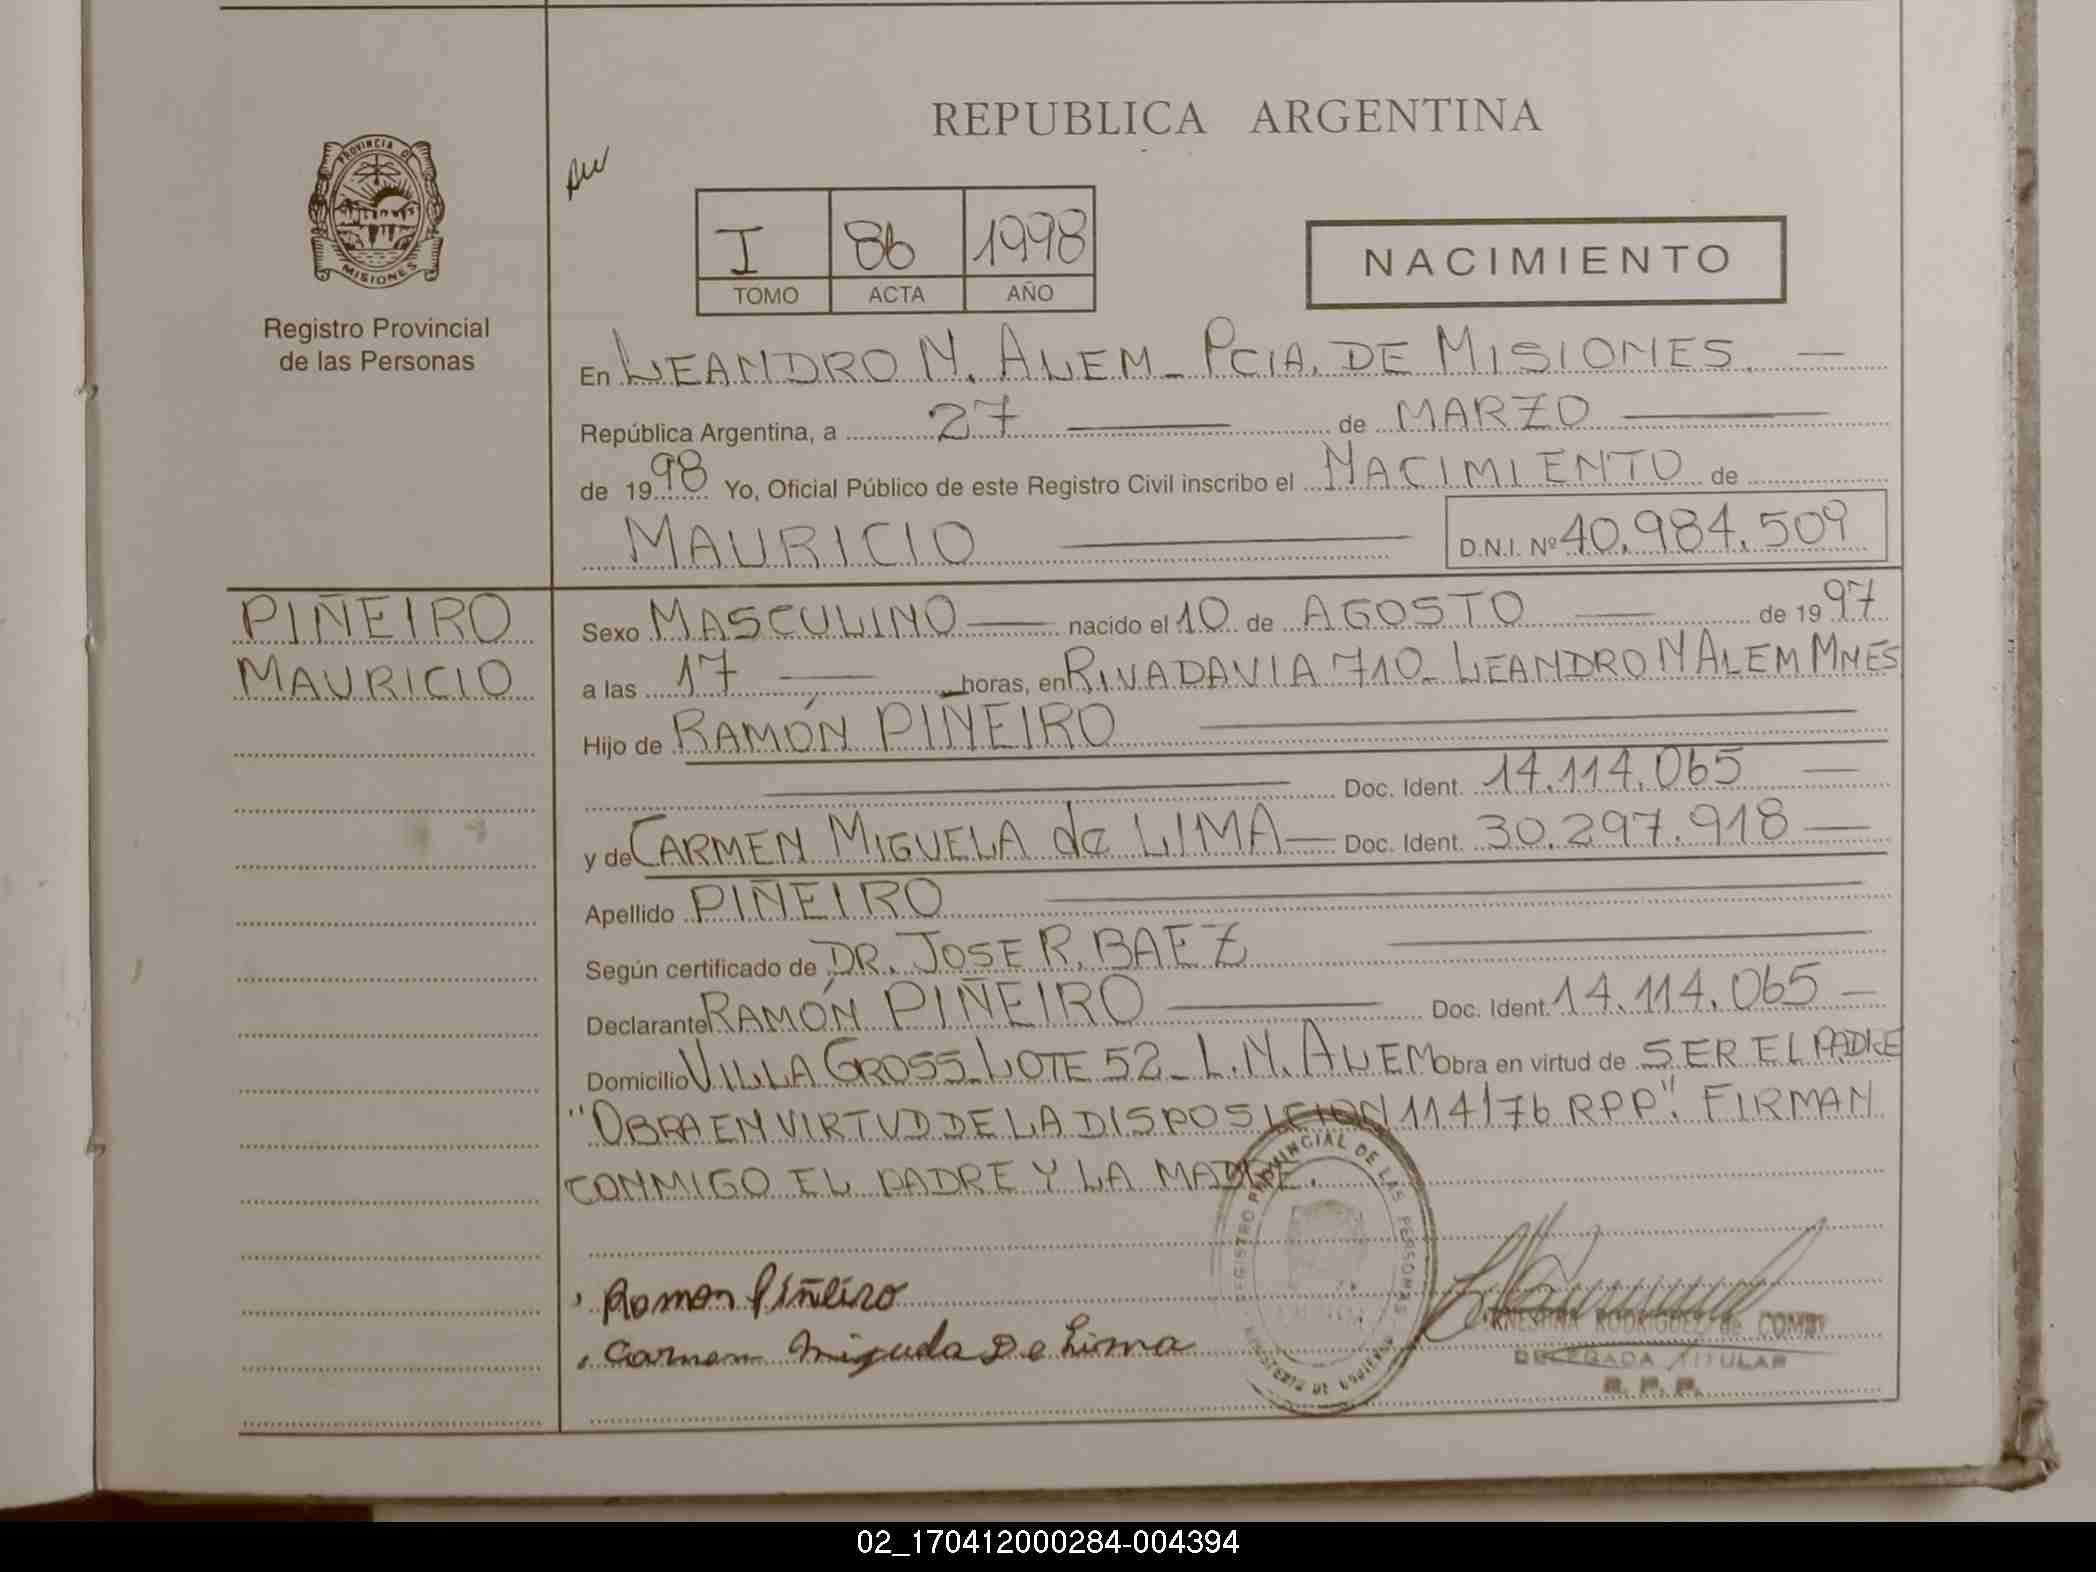 REPUBLICA ARGENTINA
PROVINCIA DE
MISIONES
Registro Provincial
de las Personas
I 86 1998
TOMO ACTA AÑO
NACIMIENTO
En LEANDRO N. ALEM - PCIA. DE MISIONES. —
República Argentina, a 27 — de MARZO —
de 1998 Yo, Oficial Público de este Registro Civil inscribo el NACIMIENTO de
MAURICIO — D.N.I. Nº 40.984.509
PIÑEIRO
MAURICIO
Sexo MASCULINO — nacido el 10 de AGOSTO — de 1997
a las 17 — horas, en RIVADAVIA 710 - LEANDRO N ALEM MNES
Hijo de RAMÓN PIÑEIRO —
— Doc. Ident. 14.114.065 —
y de CARMEN MIGUELA de LIMA — Doc. Ident. 30.297.918 —
Apellido PIÑEIRO —
Según certificado de DR. JOSE R. BAEZ —
Declarante RAMÓN PIÑEIRO — Doc. Ident. 14.114.065 —
Domicilio VILLA GROSS - LOTE 52 - L.N. ALEM Obra en virtud de SER EL PADRE
"OBRA EN VIRTUD DE LA DISPOSICION 114/76 RPP". FIRMAN
CONMIGO EL PADRE Y LA MADRE.
REGISTRO PROVINCIAL DE LAS PERSONAS
Ramon Piñeiro
Carmen Miguela De Lima
RODRIGUEZ de
DELEGADA TITULAR
R. P. P.
02_170412000284-004394